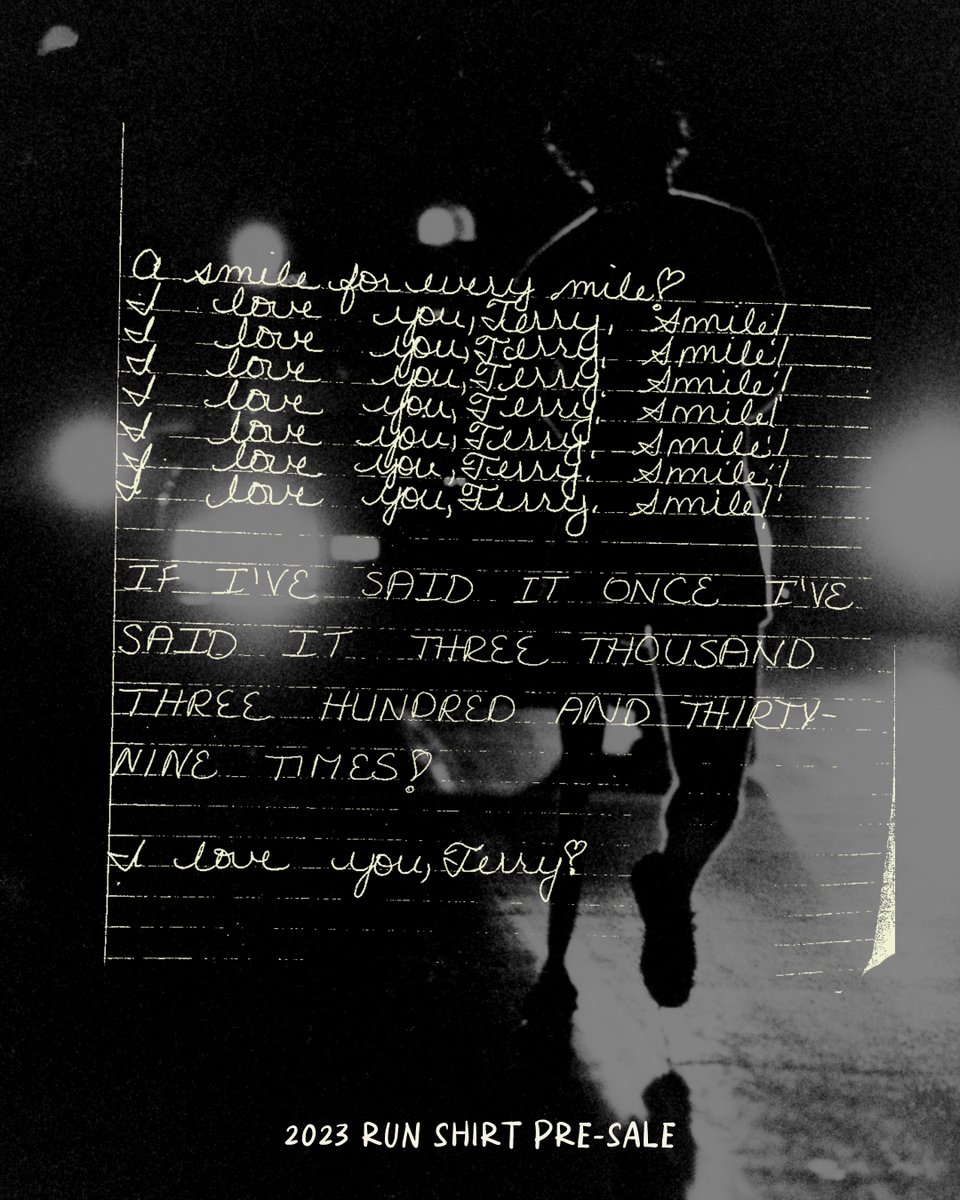 A smile for every mile!
I love you, Terry. Smile!
I love you, Terry. Smile!
I love you, Terry. Smile!
I love you, Terry. Smile!
I love you, Terry. Smile!
I love you, Terry. Smile!
I love you, Terry. Smile!
IF I'VE SAID IT ONCE I'VE
SAID IT THREE THOUSAND
THREE HUNDRED AND THIRTY-
NINE TIMES!
I love you, Terry!
2023 RUN SHIRT PRE-SALE